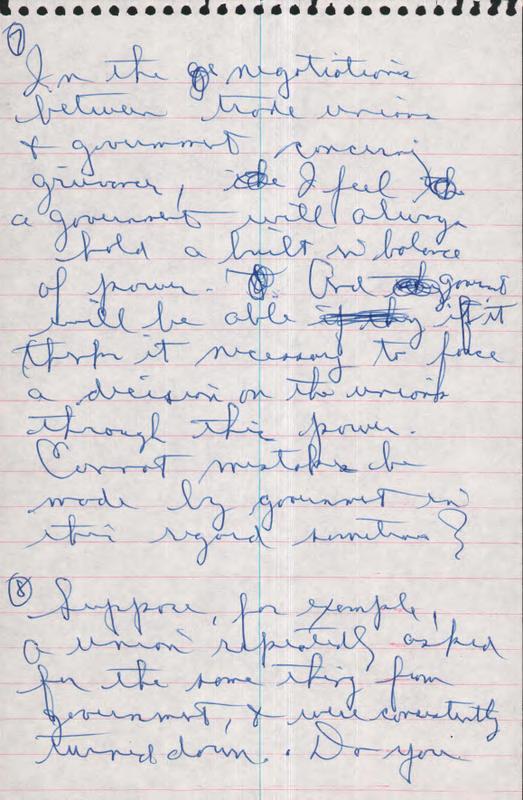 7
In the negotiations
between trade unions
& government concerning
grievances, I feel
a government will always
hold a built in balance
of power. And goverment
will be able if it
thinks it necessary to force
a decision on the unions
through this power.
Cannot mistakes be
made by government in
this regard sometimes?
8 Suppose, for example,
a union repeatedly asked
for the same thing from
government, & were consistently
turned down. Do you